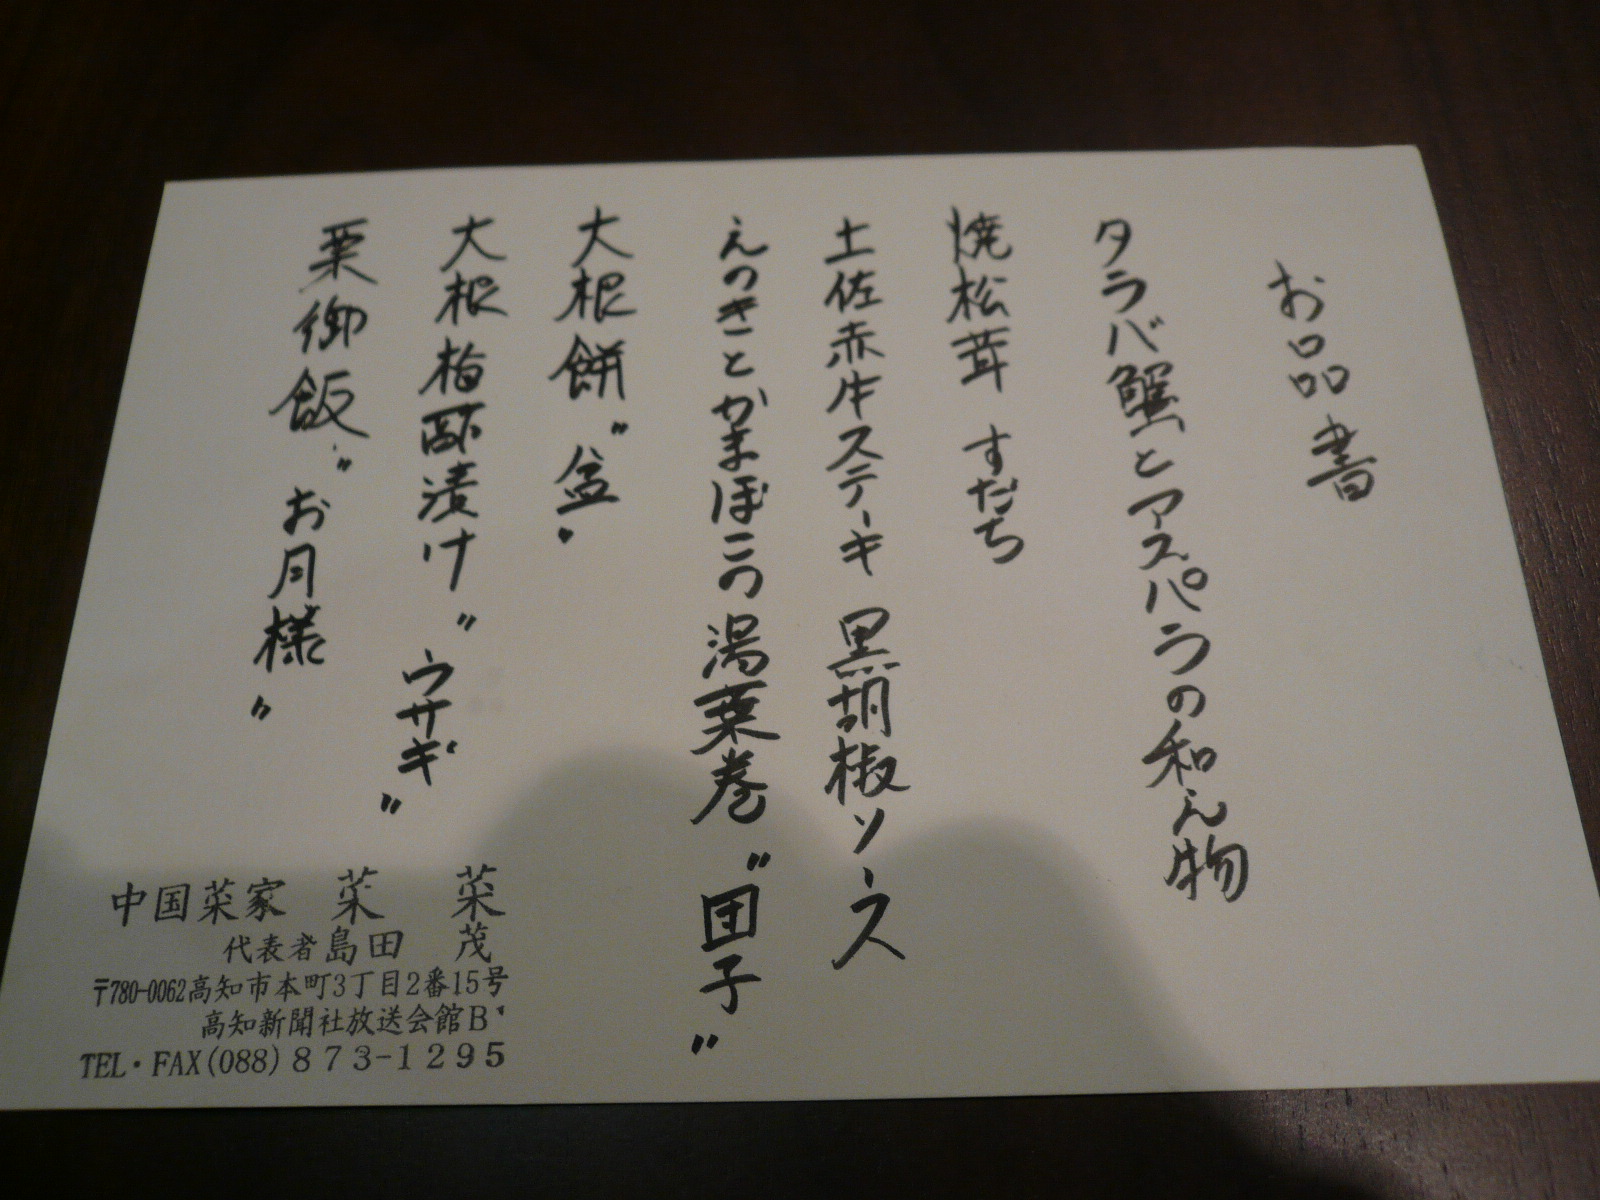 お品書
タラバ蟹とアスパラの和え物
焼松茸 すだち
土佐赤牛ステーキ 黒胡椒ソース
えのきとかまぼこの湯葉巻 "団子"
大根餅 "盆"
大根梅酢漬け "ウサギ"
栗御飯 "お月様"
中国菜家 菜 菜
代表者 島田 茂
〒780-0062 高知市本町3丁目2番15号
高知新聞社放送会館B'
TEL・FAX(088)873-1295